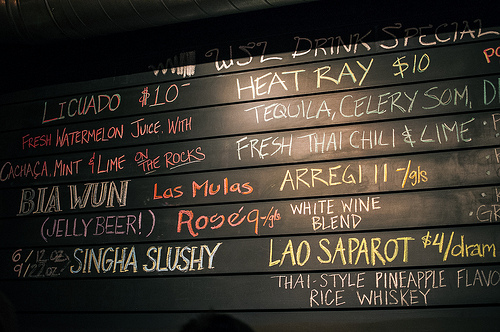 WSL DRINK SPECIAL
LICUADO $10-
FRESH WATERMELON JUICE, WITH
CACHAÇA, MINT & LIME ON THE ROCKS
HEAT RAY $10
TEQUILA, CELERY SOM, D
FRESH THAI CHILI & LIME
BIA WUN
(JELLY BEER!)
6/12 oz
9/22 oz
SINGHA SLUSHY
LAS MULAS
Rosé 9-/gls
ARREGI 11-/gls
WHITE WINE
BLEND
LAO SAPAROT $4/dram
THAI-STYLE PINEAPPLE FLAVO
RICE WHISKEY